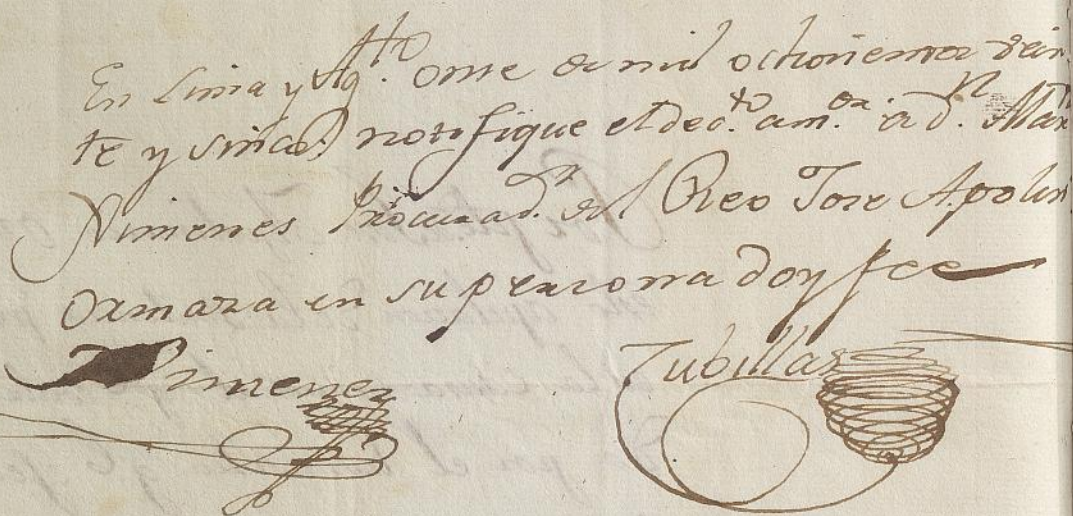 En Lima y Ag.to onse de mil ochosientos vein
te y sinco notifique el dec.to am.or a d.n Man
Ximenes Procurad.r del Reo Jose Apolin
Ormaza en su persona doy fee
Ximenez Cubillas